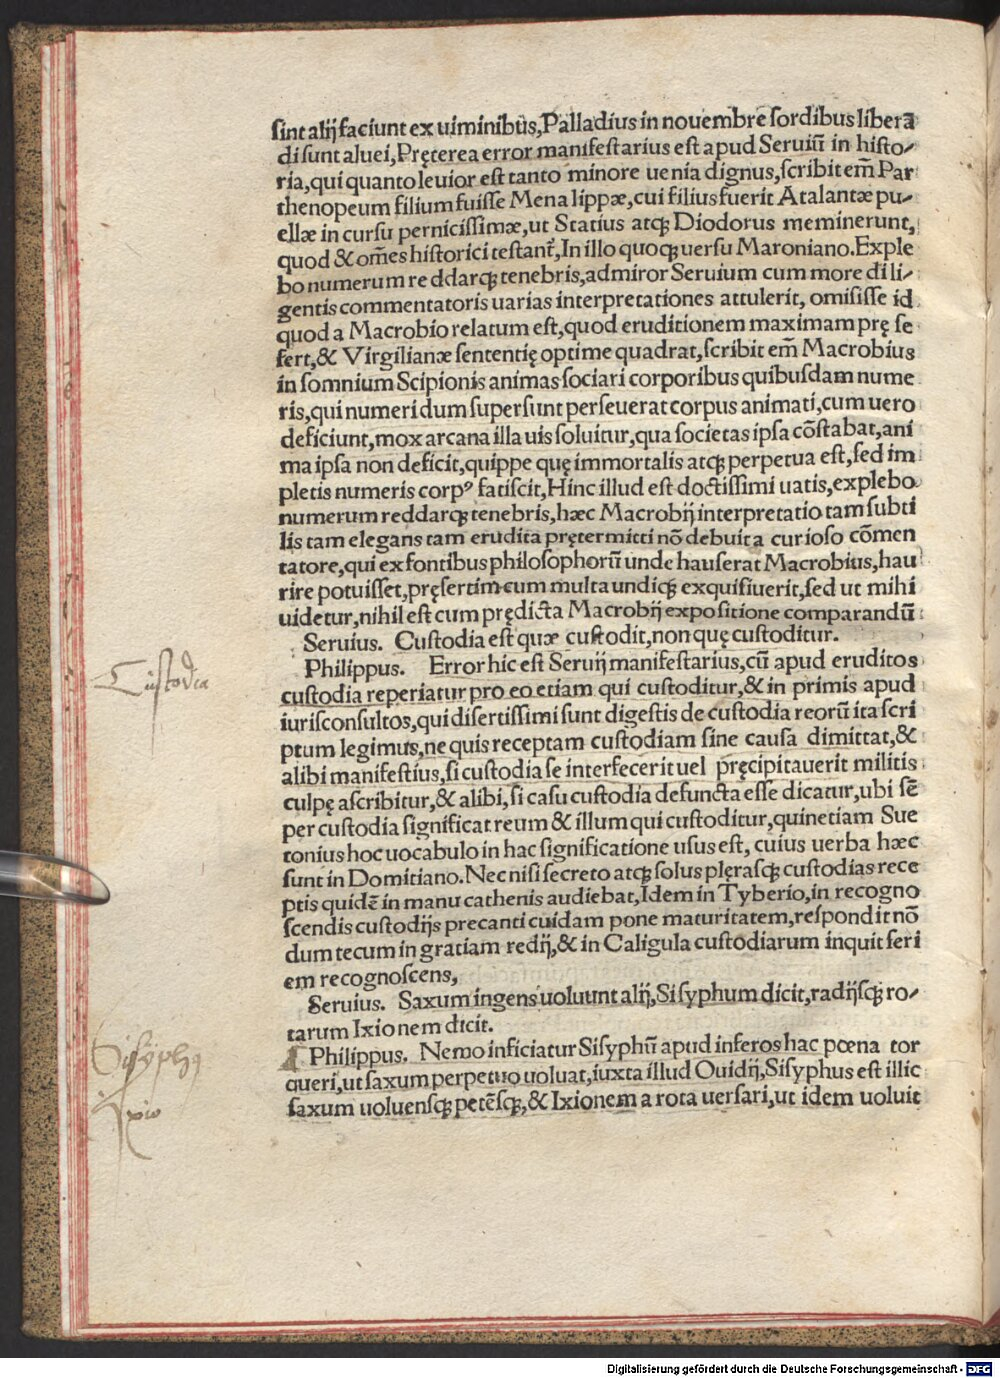 sint alij faciunt ex uiminibus,Palladius in nouembre sordibus libera
di sunt aluei,Pręterea error manifestarius est apud Seruiũ in histo-
ria,qui quanto leuior est tanto minore uenia dignus,scribit em̃ Par
thenopeum filium fuisse Menalippæ,cui filius fuerit Atalantæ pu-
ellæ in cursu pernicissimæ,ut Statius atqꝫ Diodorus meminerunt,
quod & om̃es historici testant̃,In illo quoqꝫ uersu Maroniano.Exple
bo numerum reddarqꝫ tenebris,admiror Seruium cum more dili-
gentis commentatoris uarias interpretationes attulerit, omisisse id
quod a Macrobio relatum est,quod eruditionem maximam prę se
fert,& Virgilianæ sententię optime quadrat,scribit em̃ Macrobius
in somnium Scipionis animas sociari corporibus quibusdam nume
ris,qui numeri dum supersunt perseuerat corpus animati,cum uero
deficiunt,mox arcana illa uis soluitur,qua societas ipsa cõstabat,ani
ma ipsa non deficit,quippe quę immortalis atqꝫ perpetua est,sed im
pletis numeris corpꝰ fatiscit,Hinc illud est doctissimi uatis,explebo
numerum reddarqꝫ tenebris,hæc Macrobij interpretatio tam subti
lis tam elegans tam erudita prętermitti nõ debuit a curioso cõmen
tatore,qui ex fontibus philosophorũ unde hauserat Macrobius,hau
rire potuisset,pręsertim cum multa undiqꝫ exquisiuerit,sed ut mihi
uidetur,nihil est cum prędicta Macrobij expositione comparandũ
Seruius. Custodia est quæ custodit,non quę custoditur.
Philippus. Error hic est Seruij manifestarius,cũ apud eruditos
Custodia
custodia reperiatur pro eo etiam qui custoditur,& in primis apud
iurisconsultos,qui disertissimi sunt digestis de custodia reorũ ita scri
ptum legimus,ne quis receptam custodiam sine causa dimittat,&
alibi manifestius,si custodia se interfecerit uel pręcipitauerit militis
culpę ascribitur,& alibi,si casu custodia defuncta esse dicatur,ubi sẽ
per custodia significat reum & illum qui custoditur,quinetiam Sue
tonius hoc uocabulo in hac significatione usus est, cuius uerba hæc
sunt in Domitiano.Nec nisi secreto atqꝫ solus plęrasqꝫ custodias rece
ptis quidẽ in manu cathenis audiebat,Idem in Tyberio,in recogno
scendis custodijs precanti cuidam pone maturitatem,respondit nõ
dum tecum in gratiam redij,& in Caligula custodiarum inquit seri
em recognoscens,
Seruius. Saxum ingens uoluunt alij,Sisyphum dicit,radijsqꝫ ro-
tarum Ixionem dicit.
Sisyphꝰ
Philippus. Nemo inficiatur Sisyphũ apud inferos hac pœna tor
queri,ut saxum perpetuo uoluat,iuxta illud Ouidij,Sisyphus est illic
Ixio
saxum uoluensqꝫ petẽsqꝫ,& Ixionem a rota uersari,ut idem uoluit
Digitalisierung gefördert durch die Deutsche Forschungsgemeinschaft - DFG